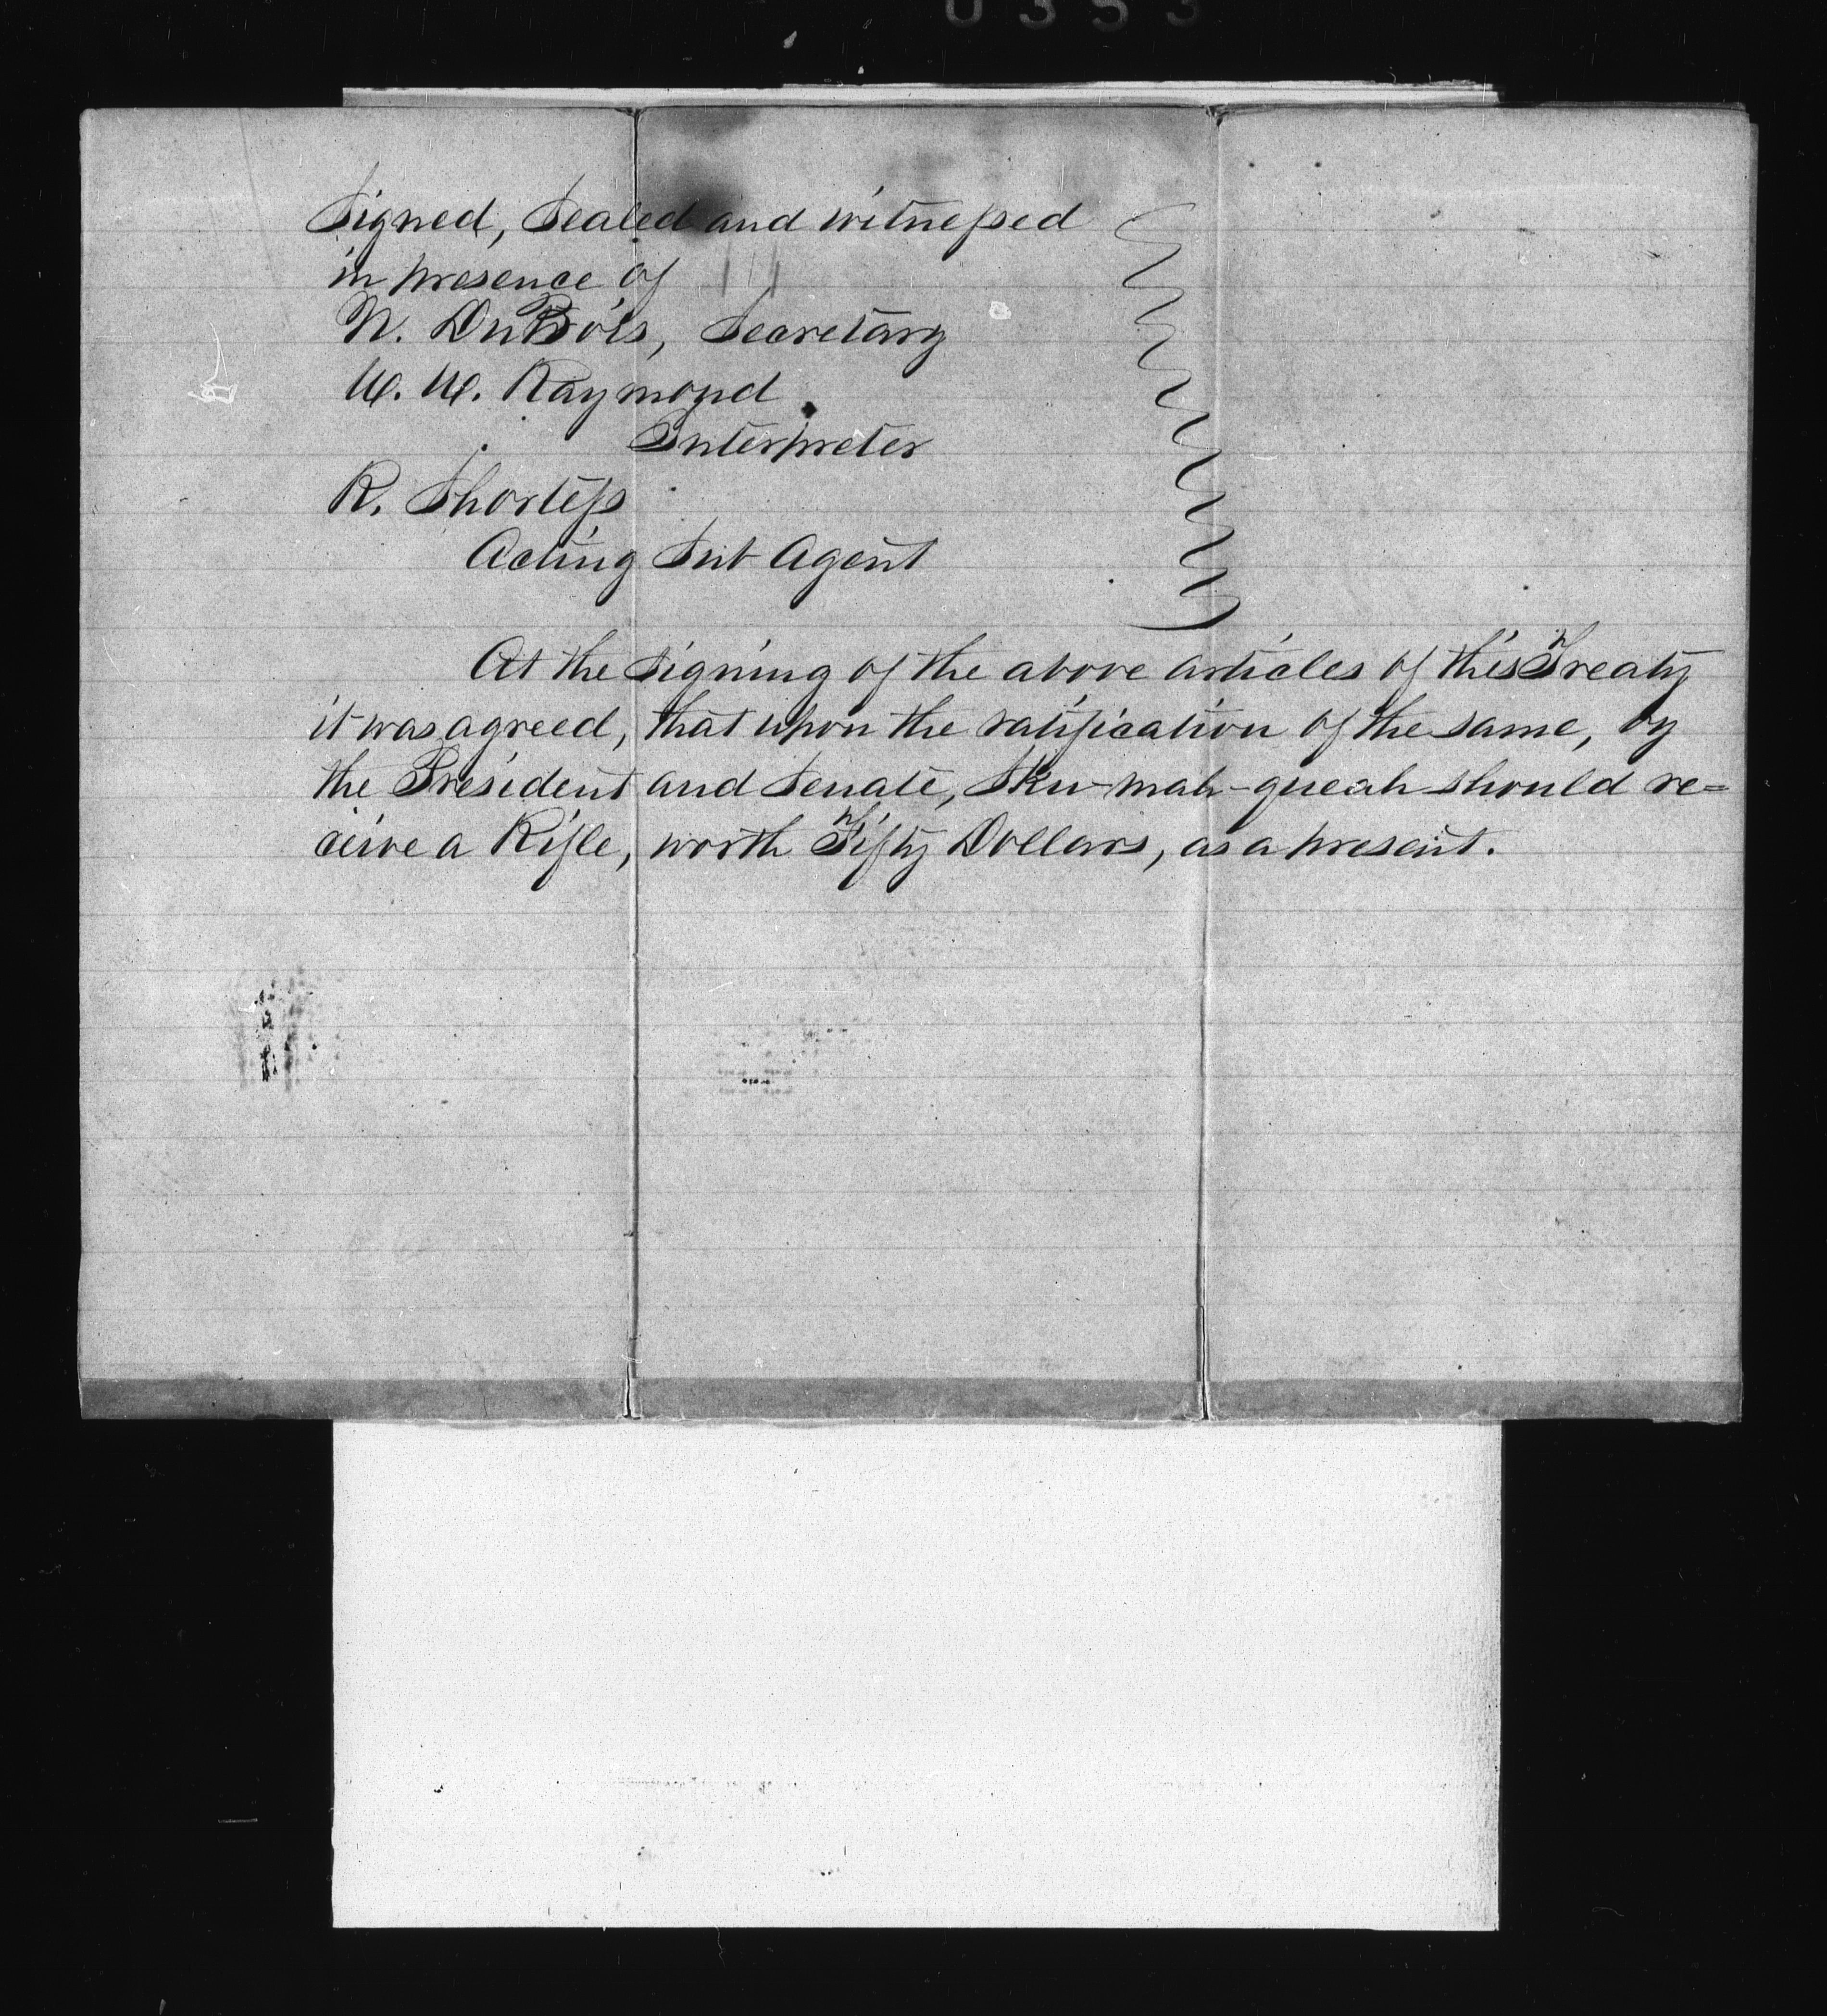 0353
Signed, Sealed and witnessed
in presence of
N. DuBois, Secretary
W. W. Raymond
Interpreter
R. Shortess
Acting Sub Agent
At the signing of the above articles of this Treaty
it was agreed, that upon the ratification of the same, by
the President and Senate, Sku-mah-queah should re=
ceive a Rifle, worth Fifty Dollars, as a present.